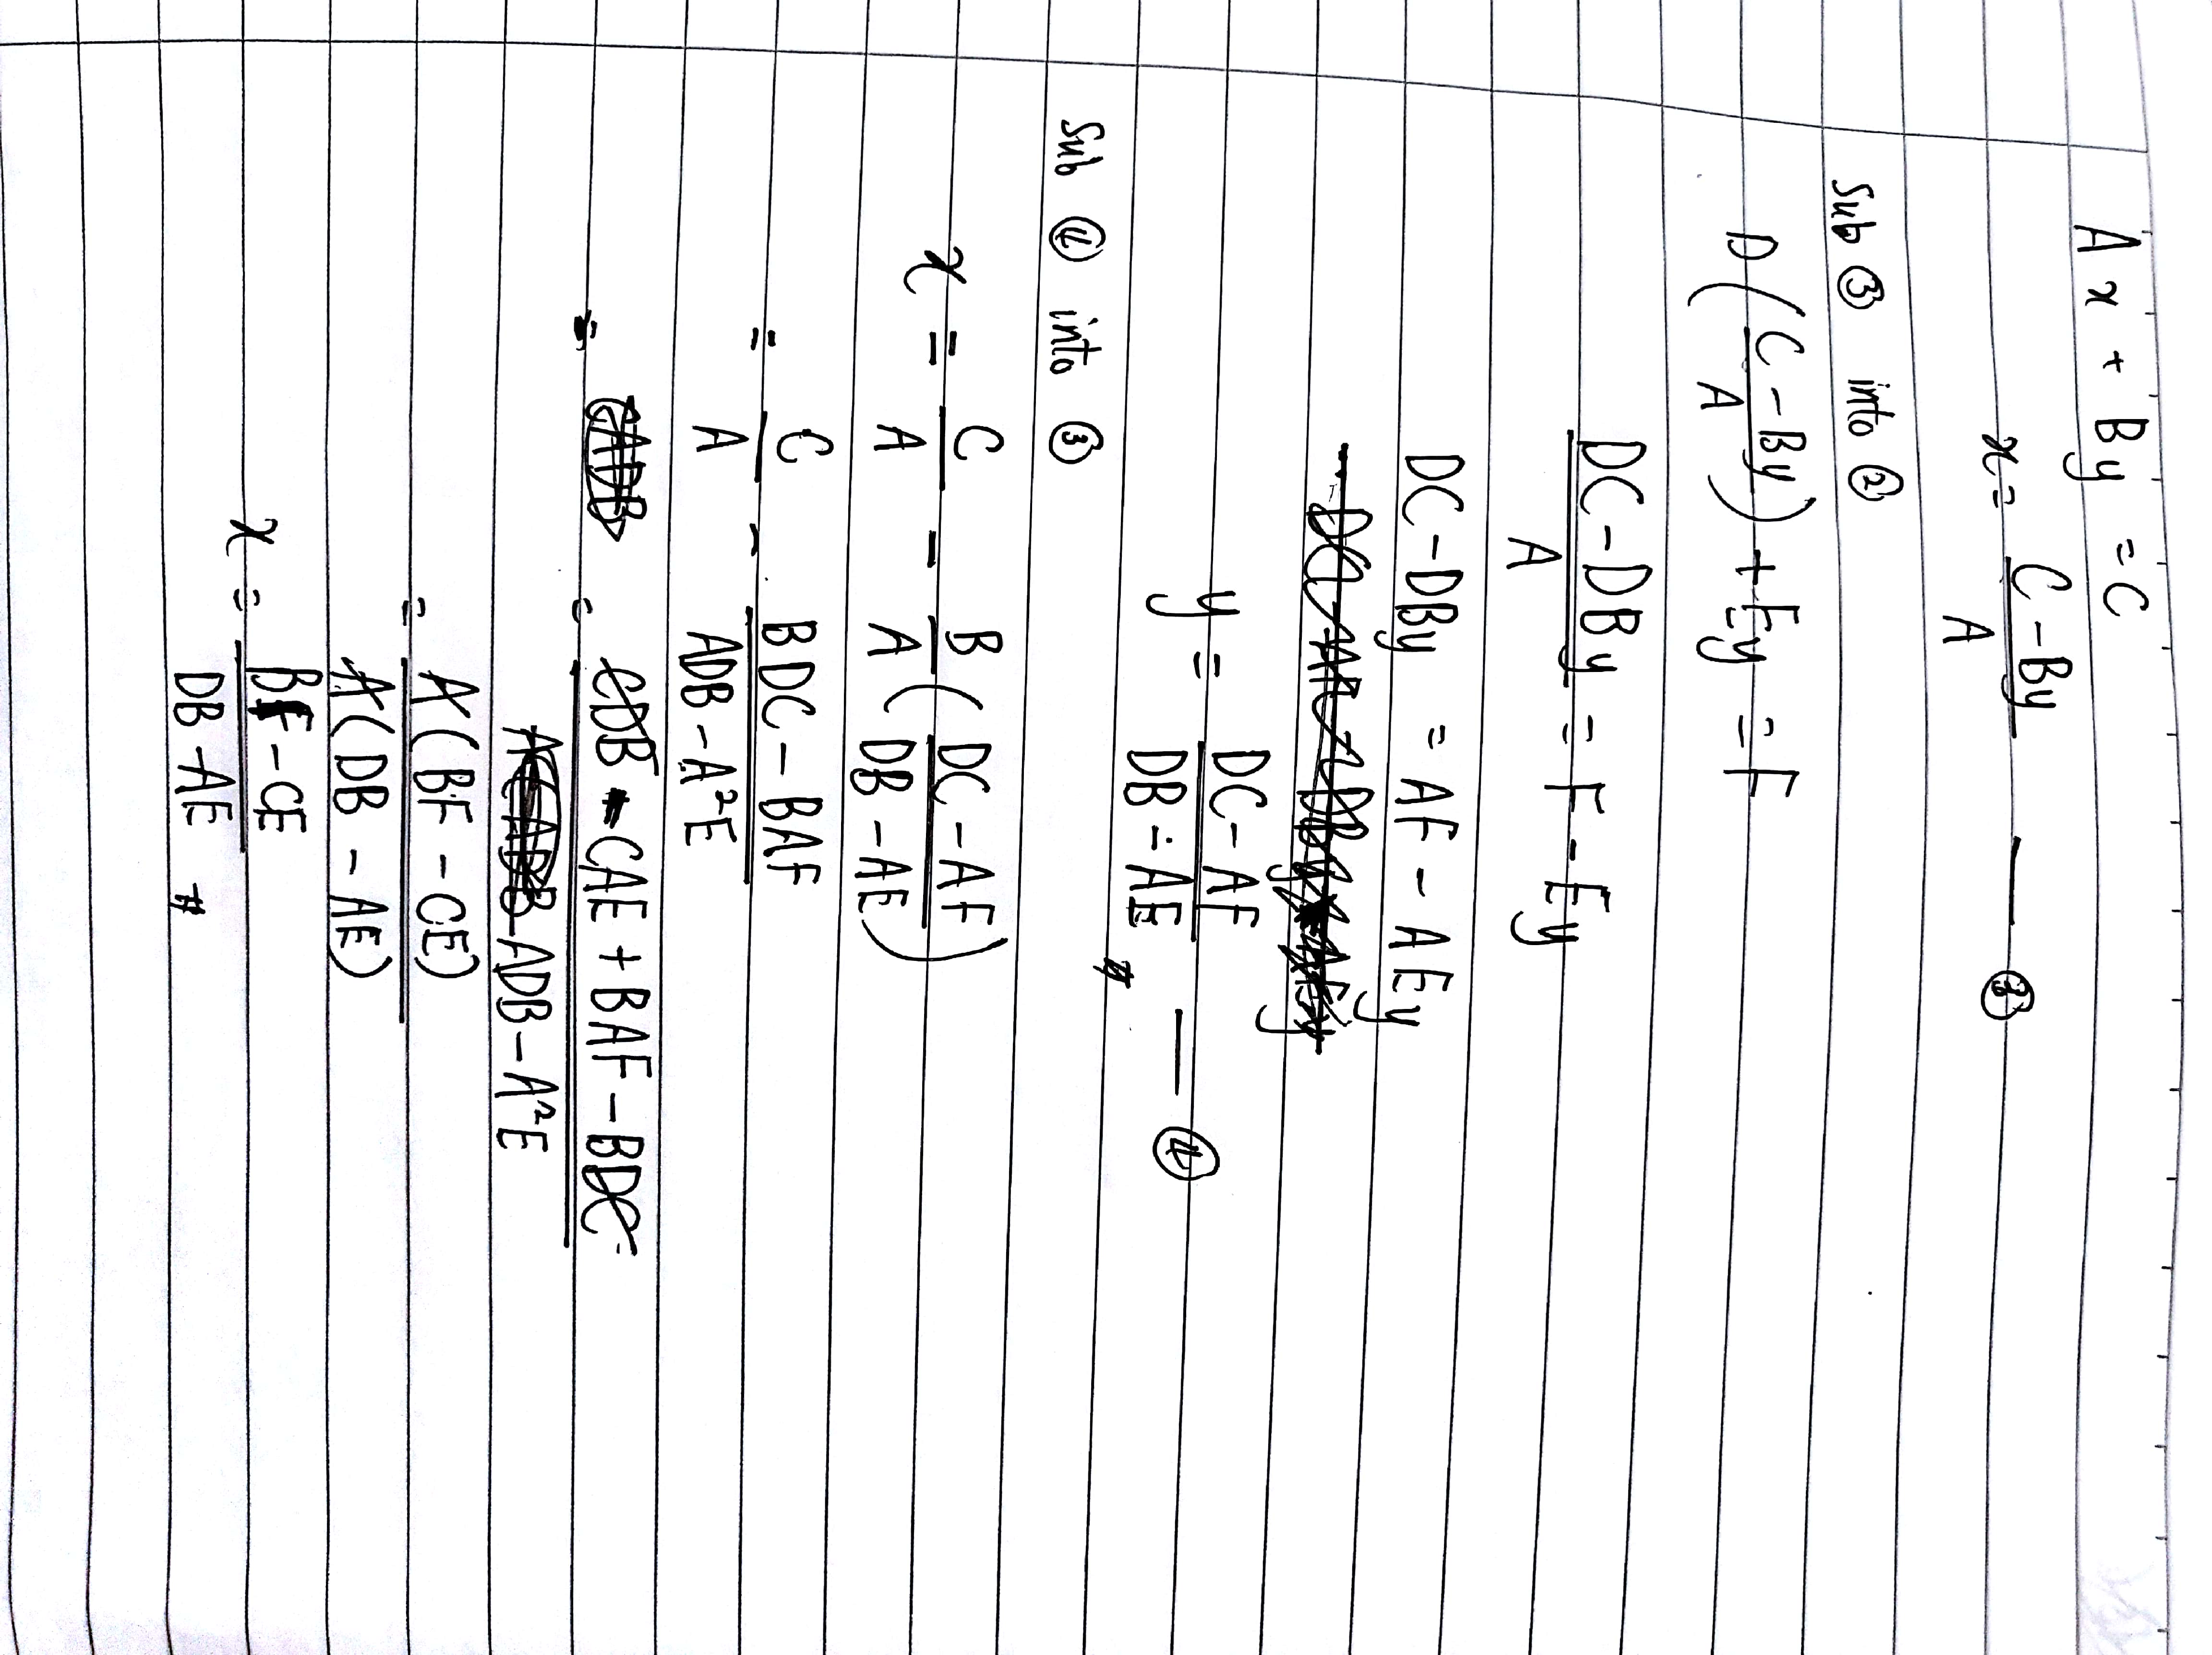 Ax + By = C
x = (C - By)/A — ③
Sub ③ into ②
D((C - By)/A) + Ey = F
(DC - DBy)/A = F - Ey
DC - DBy = AF - AEy
y = (DC - AF)/(DB - AE) — ④
Sub ④ into ③
x = C/A - B/A((DC - AF)/(DB - AE))
= C/A - (BDC - BAF)/(ADB - A²E)
= = (CDB - CAE + BAF - BDC)/(ADB - A²E)
= A(BF - CE)/A(DB - AE)
x = (BF - CE)/(DB - AE)